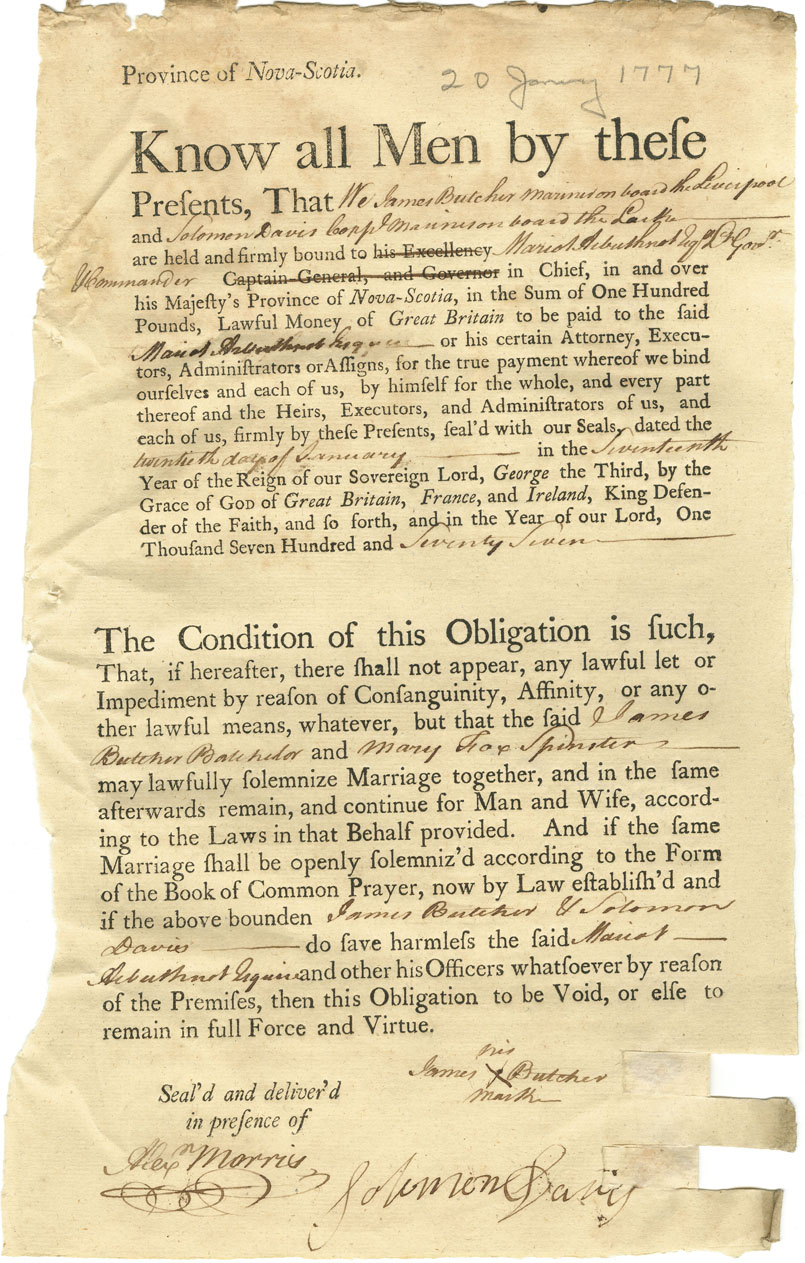 Province of Nova-Scotia.
20 January 1777
Know all Men by theſe
Preſents, That We James Butcher Marine on board the Liverpool
and Solomon Davis Corpl Marine on board the Lark
are held and firmly bound to his Excellency Mariot Arbuthnot Esqr Lt Govr.
& Commander Captain-General, and Governor in Chief, in and over
his Majeſty's Province of Nova-Scotia, in the Sum of One Hundred
Pounds, Lawful Money of Great Britain to be paid to the ſaid
Mariot Arbuthnot Esquire or his certain Attorney, Execu-
tors, Adminiſtrators or Aſſigns, for the true payment whereof we bind
ourſelves and each of us, by himſelf for the whole, and every part
thereof and the Heirs, Executors, and Adminiſtrators of us, and
each of us, firmly by theſe Preſents, ſeal'd with our Seals, dated the
twentieth day of January in the Seventeenth
Year of the Reign of our Sovereign Lord, George the Third, by the
Grace of GOD of Great Britain, France, and Ireland, King Defen-
der of the Faith, and ſo forth, and in the Year of our Lord, One
Thouſand Seven Hundred and Seventy Seven
The Condition of this Obligation is ſuch,
That, if hereafter, there ſhall not appear, any lawful let or
Impediment by reaſon of Conſanguinity, Affinity, or any o-
ther lawful means, whatever, but that the ſaid James
Butcher Batchelor and Mary Fox Spinster
may lawfully ſolemnize Marriage together, and in the ſame
afterwards remain, and continue for Man and Wife, accord-
ing to the Laws in that Behalf provided. And if the ſame
Marriage ſhall be openly ſolemniz'd according to the Form
of the Book of Common Prayer, now by Law eſtabliſh'd and
if the above bounden James Butcher & Solomon
Davis do ſave harmleſs the ſaid Mariot
Arbuthnot Esquire and other his Officers whatſoever by reaſon
of the Premiſes, then this Obligation to be Void, or elſe to
remain in full Force and Virtue.
his
James X Butcher
mark
Seal'd and deliver'd
in preſence of
Alexr Morris
Solomon Davis